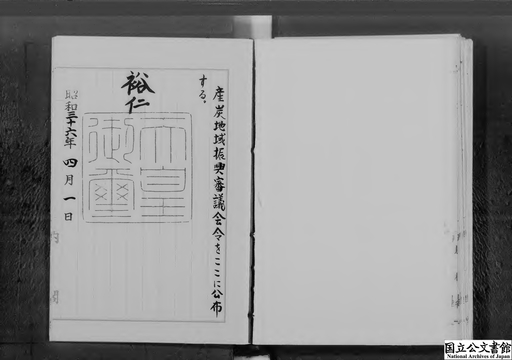 産炭地域振興審議会令をここに公布
する。
裕仁
天皇御璽
昭和三十六年四月一日
内
閣
国立公文書館
National Archives of Japan